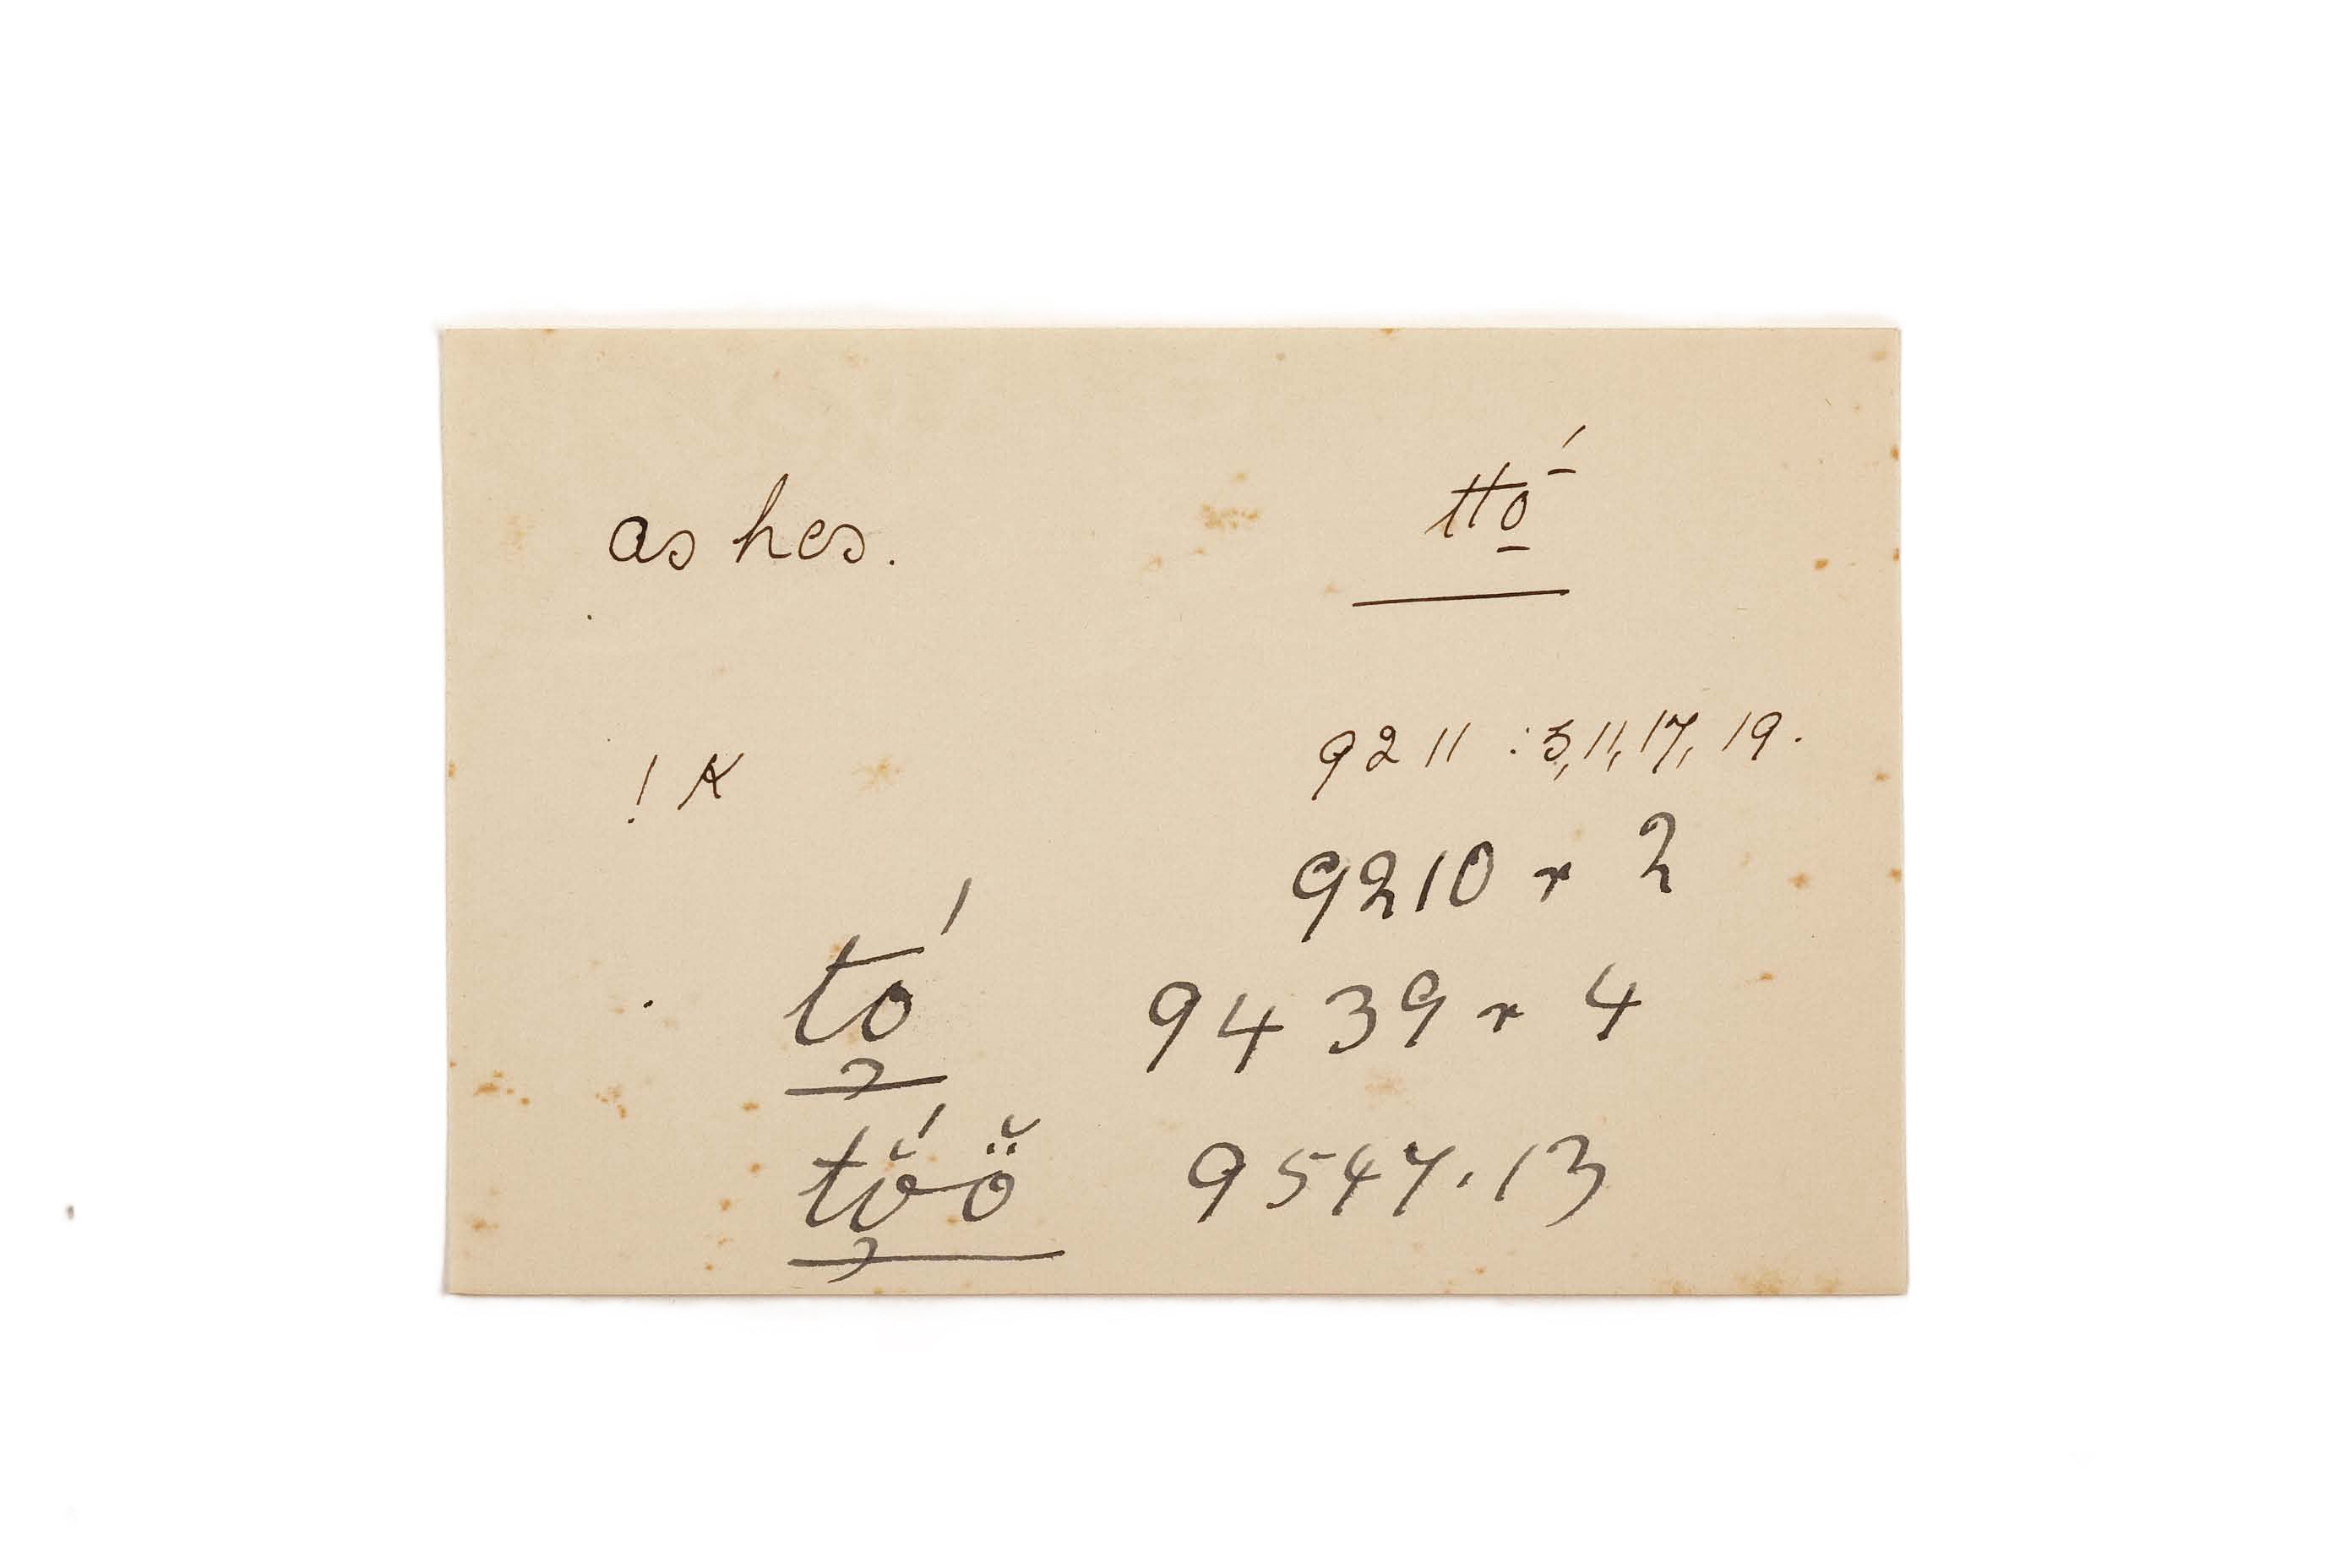 ashes. ttṓ̱
9211 :3,11,17, 19.
! K
9210 r 2
tó̜ 9439 r 4
tŏ̜́ŏ̈ 9547. 13